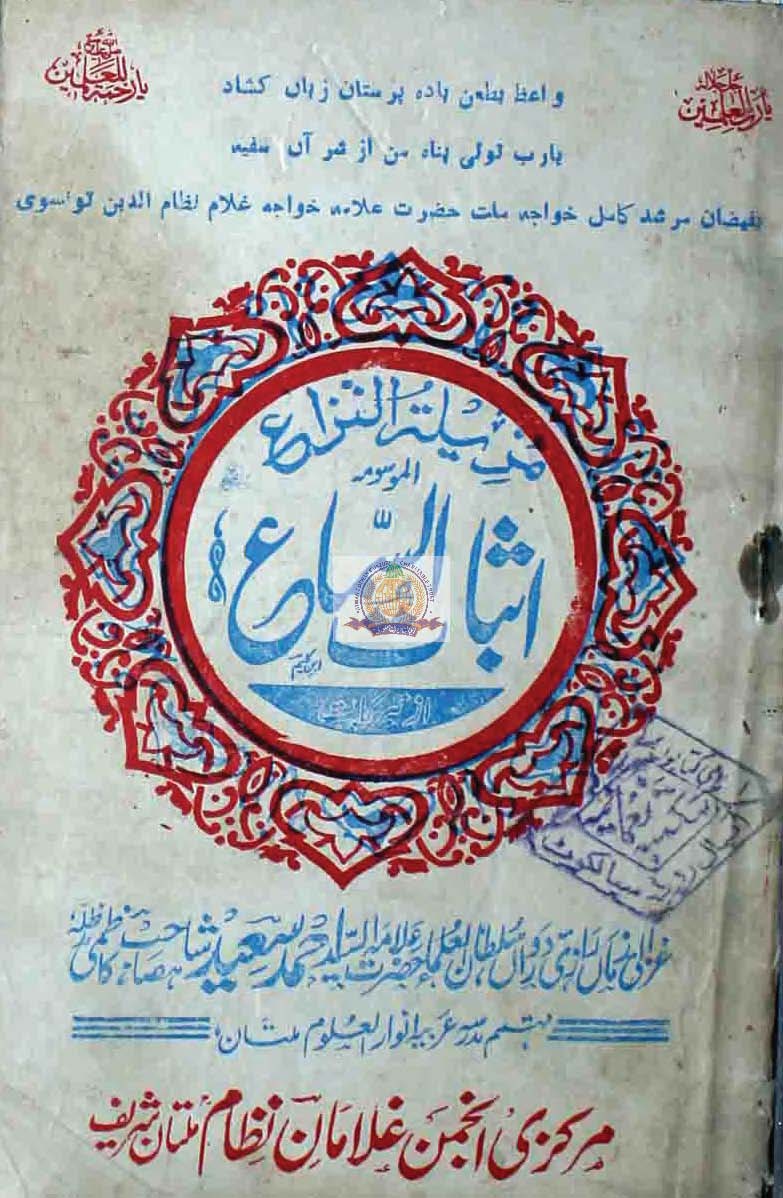 جل جلالہ
یا رب العلمین
صلی اللہ علیہ وسلم
یا رحمة للعلمین
واعظ بطعن بادہ پرستان زباں کشاد
یارب تولی پناہ من از شر آں سفیہ
بفیضان مرشد کامل خواجہ ملت حضرت علامہ خواجہ غلام نظام الدین تونسوی
مزیلة النزاع
الموسومہ
اثبات السماع
از تبرکات
غزالی زماں رازی دوراں سلطان العلماء حضرت علامہ السید احمد سعید شاہ صاحب کاظمی مدظلہ
مہتمم مدرسہ عربیہ انوار العلوم ملتان
مرکزی انجمن غلامان نظام ملتان شریف
سیالکوٹ